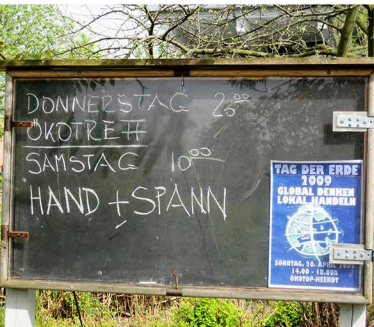 DONNERSTAG 20⁰⁰
ÖKOTREFF
SAMSTAG 10⁰⁰
HAND + SPANN
TAG DER ERDE
2009
GLOBAL DENKEN
LOKAL HANDELN
SONNTAG, 26. APRIL 2009
14.00 - 18.00H
ÖKOTOP-HEERDT